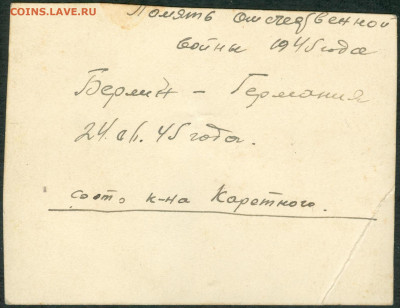 COINS.LAVE.RU
Память отечественной
войны 1945 года
Берлин - Германия
24. 45 года.
фото к-на Коротного.